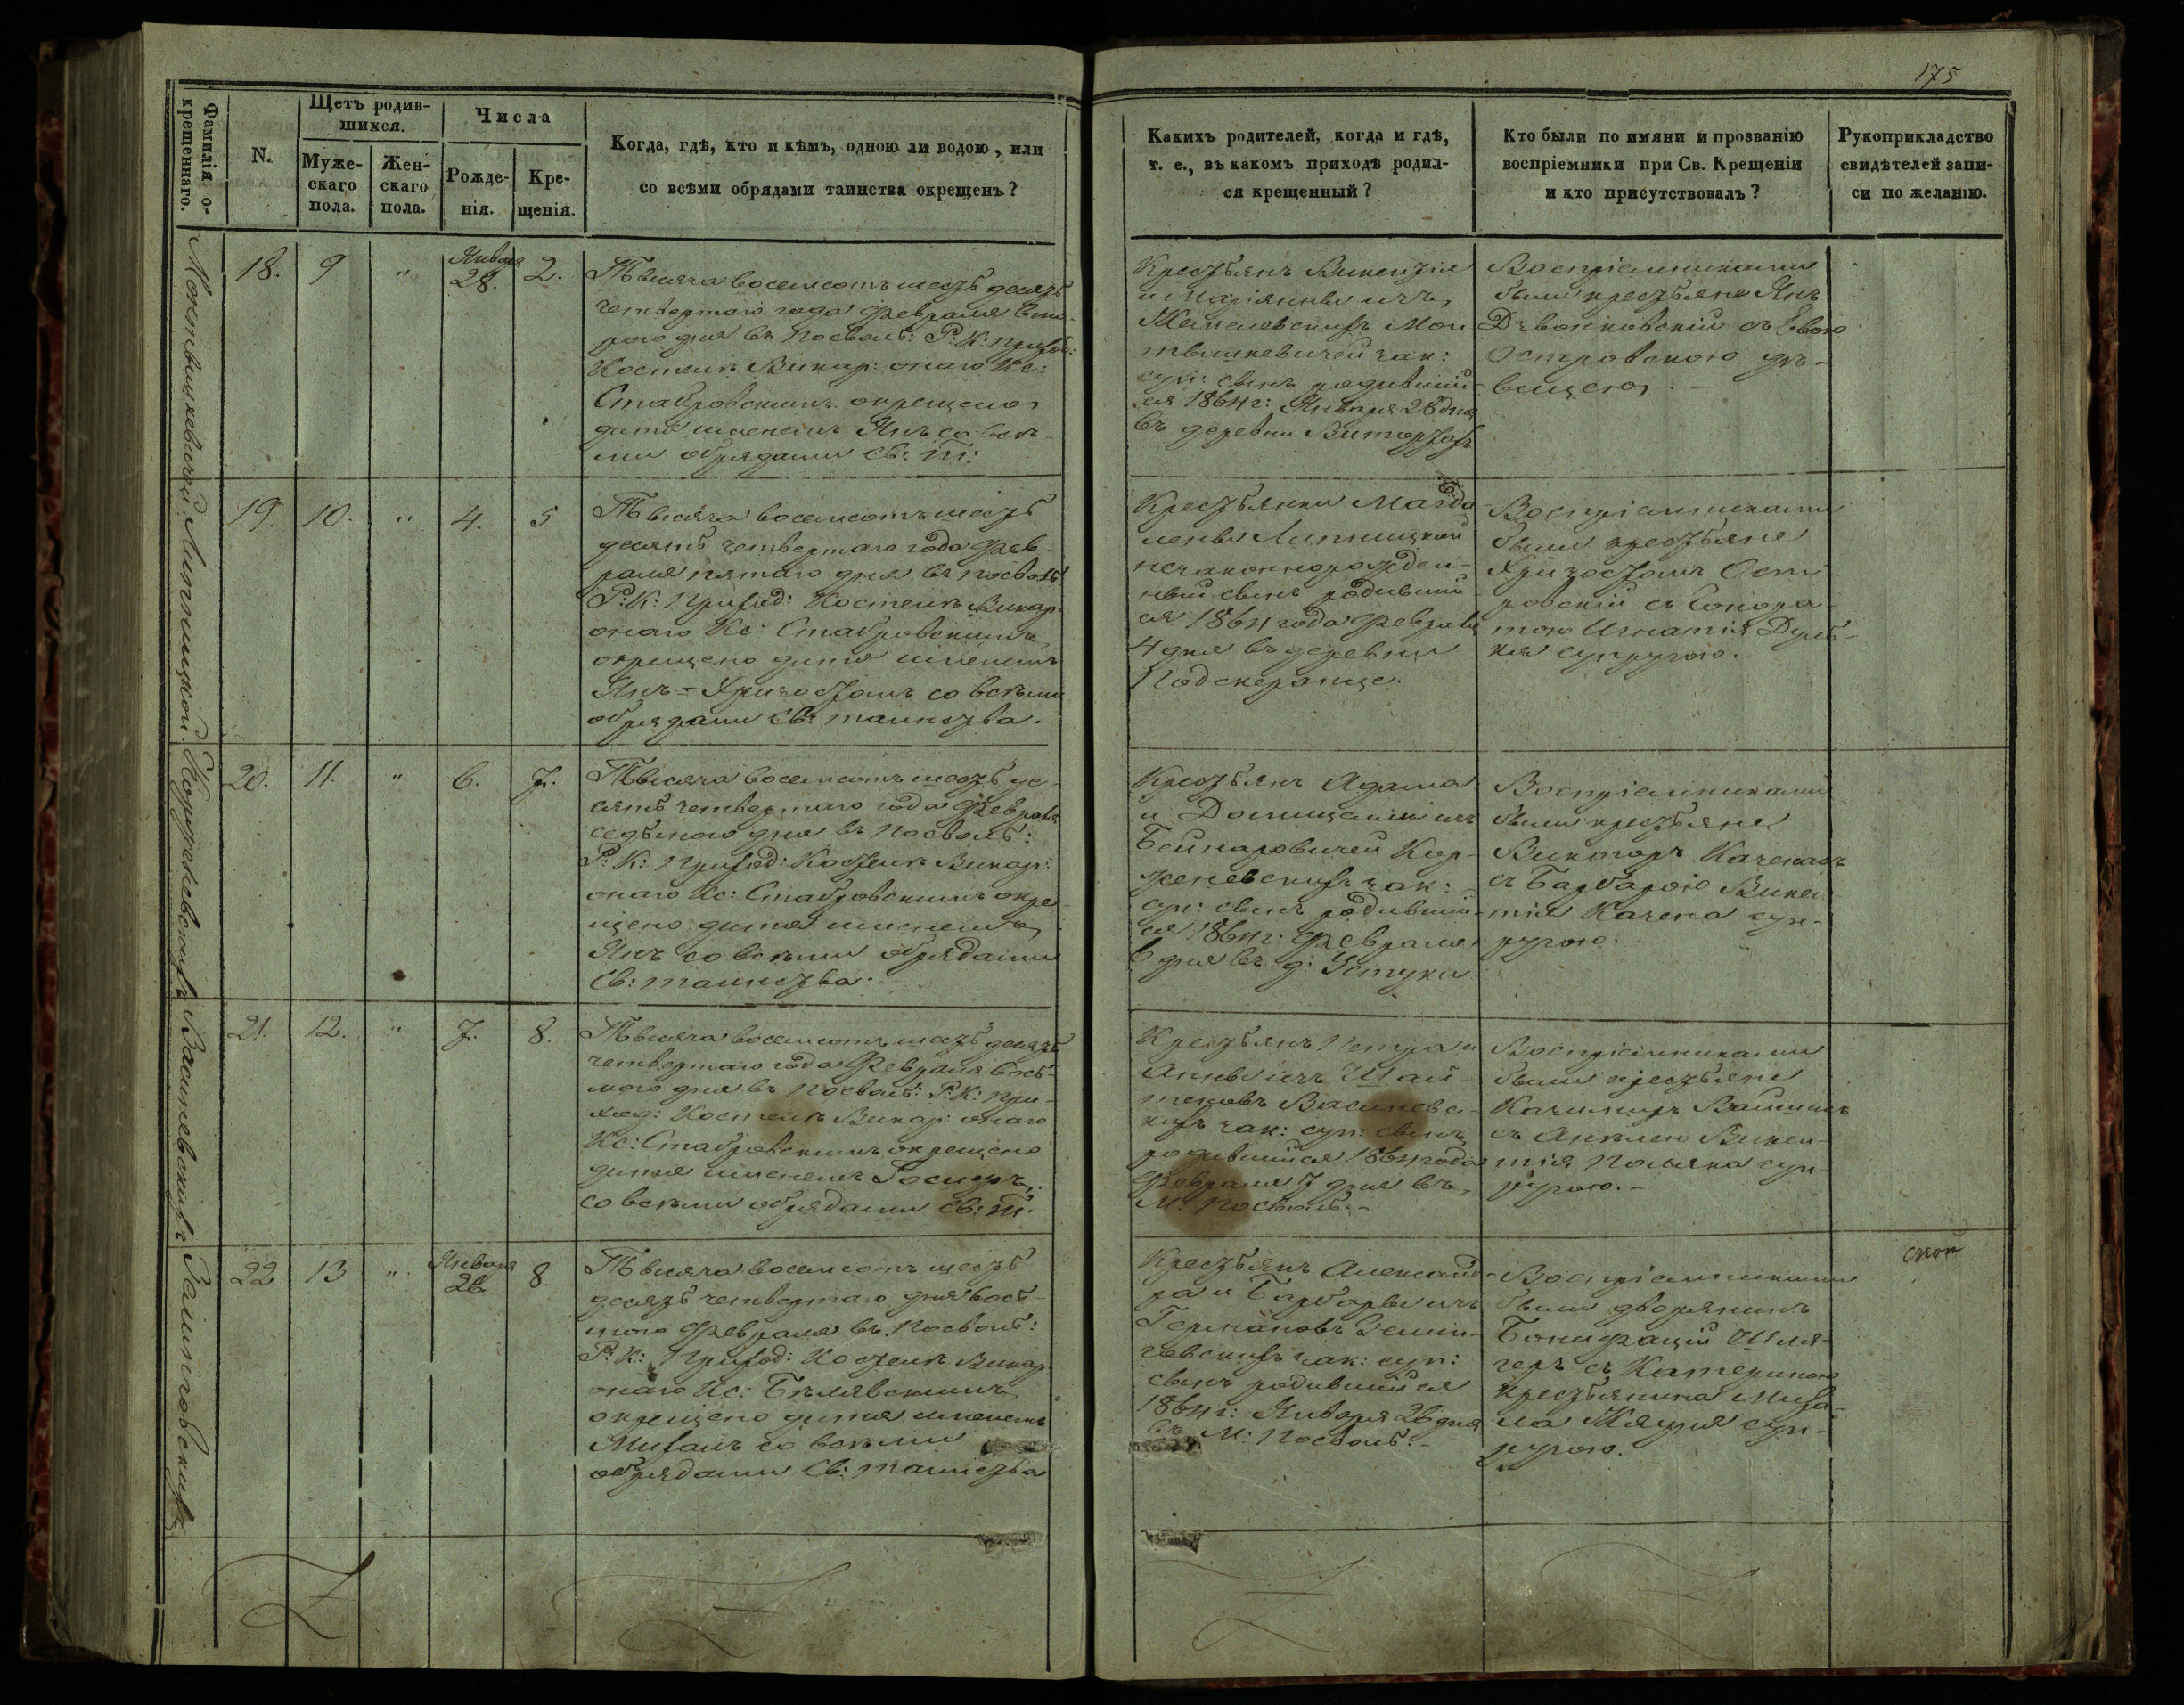 175
Фамилія о-
крещеннаго.
N.
Щетъ родив-
шихся.
Муже-
скаго
пола.
Жен-
скаго
пола.
Числа
Рожде-
нія.
Кре-
щенія.
Когда, гдѣ, кто и кѣмъ, одною ли водою, или
со всѣми обрядами таинства окрещенъ?
Какихъ родителей, когда и гдѣ,
т. е., въ какомъ приходѣ родил-
ся крещенный?
Кто были по имяни и прозванію
воспріемники при Св. Крещеніи
и кто присутствовалъ?
Рукоприкладство
свидѣтелей запи-
си по желанію.
18. 9. " Января 28. 2.
Тысяча восемсотъ шесть десять
четвертаго года Февраля вто-
рого дня въ Посвол: Р: К: Приход:
Костелѣ Викар: онаго Кс:
Ставровскимъ окрещено
дитя именемъ Янъ со всѣ-
ми обрядами Св: Т:
Крестьянъ Викентія
и Маріянны изъ
Мон
тышкевичей зак:
суп: сынъ родивший-
ся 1864 г: Января 28 дня
въ деревни
Воспріемниками
были крестьяне Янъ
съ Евою
Островскою дѣ-
вицею. -
Липницкой
19. 10. " 4. 5
Тысяча восемсотъ шесть
десять четвертаго года Фев-
раля пятаго дня въ Посвол:
Р: К: Приход: Костелѣ Викар:
онаго Кс: Ставровскимъ
окрещено дитя именемъ
Янъ-Хризостомъ со всѣми
обрядами Св: таинства.
Крестьянки Магда
лены Липницкой
незаконнорожден-
ный сынъ родивший
ся 1864 года Февраля
4 дня въ деревни
Воспріемниками
были крестьяне
Хризостомъ Ост-
ровскій съ Гонора-
тою Игнатія
супругою. -
20. 11. " 6. 7.
Тысяча восемсотъ шесть де-
сять четвертаго года Февраля
седьмого дня въ Посвол:
Р: К: Приход: Костелѣ Викар:
онаго Кс: Ставровскимъ окре
щено дитя именемъ
Янъ со всѣми обрядами
Св: таинства.
Крестьянъ Адама
и Доминели изъ
Бейнаровичей Кор-
женевскихъ зак:
суп: сынъ родивший-
ся 1864 г: Февраля
6 дня въ д: Устуки
Воспріемниками
были крестьяне
Викторъ
съ Барбарою Викен
тія Качена суп-
ругою. -
21. 12. " 7. 8.
Тысяча восемсотъ шесть десять
четвертаго года Февраля вось-
мого дня въ Посвол: Р: К: При-
ход: Костелѣ Викар: онаго
Кс: Ставровскимъ окрещено
дитя именемъ Іосифъ
со всѣми обрядами Св: Т:
Крестьянъ Петра и
Анны изъ Шай
зак: суп: сынъ
родившийся 1864 года
Февраля 7 дня въ
М: Посвол: -
Воспріемниками
были крестьяне
Казимиръ
съ Анелею Викен-
тія Поляка суп-
ругою. -
22 13 " Января 26 8.
Тысяча восемсотъ шесть
десять четвертаго дня вось-
мого Февраля въ Посвол:
Р: К: Приход: Костелѣ Викар:
онаго Кс: Бѣлявскимъ
окрещено дитя именемъ
Михаилъ со всѣми
обрядами Св: таинства
Крестьянъ Александ-
ра и Барбары изъ
Германовъ
зак: суп:
сынъ родившийся
1864 г: Января 26 дня
въ М: Посвол: -
Воспріемниками
были дворянинъ
Бонифацій
съ Катериною
крестьянина Миха-
ла суп-
ругою.